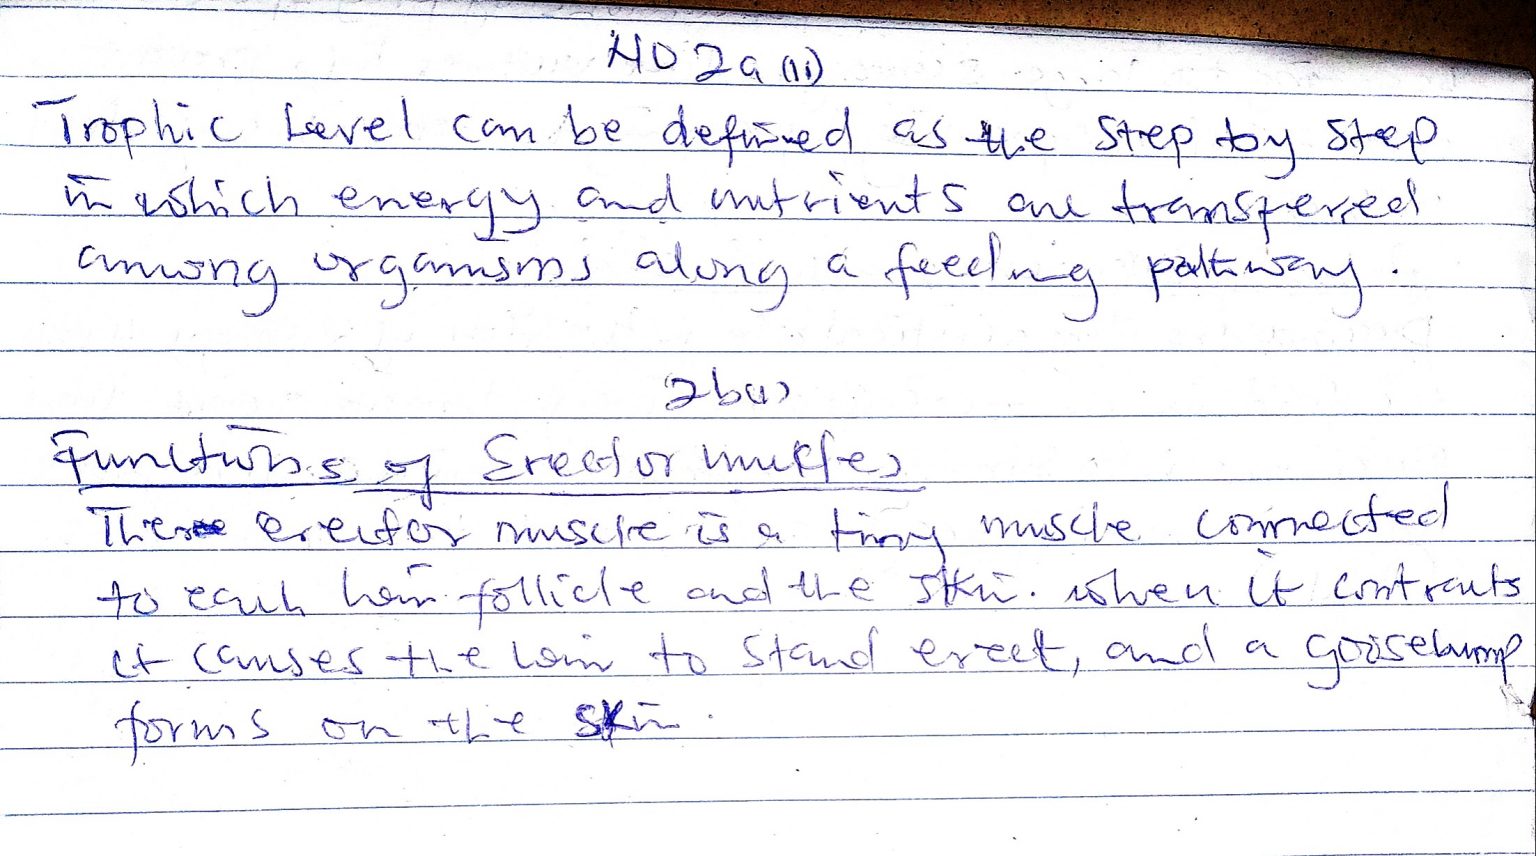 NO 2a (ii)
Trophic Level can be defined as the step by step
in which energy and nutrients are transfered
among organisms along a feeding pathway.
2b(i)
Functions of Erector muscles
The erector muscle is a tiny muscle connected
to each hair follicle and the skin. when it contracts
it causes the hair to stand erect, and a goosebump
forms on the skin.